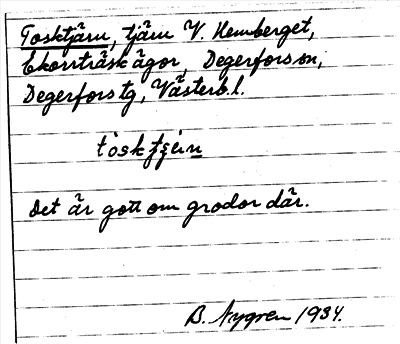 Tosktjärn, tjärn V. Hemberget,
Ekorrträsk ägor, Degerfors sn,
Degerfors tg, Västerb. l.
Det är gott om grodor där.
B. Nygren 1934.